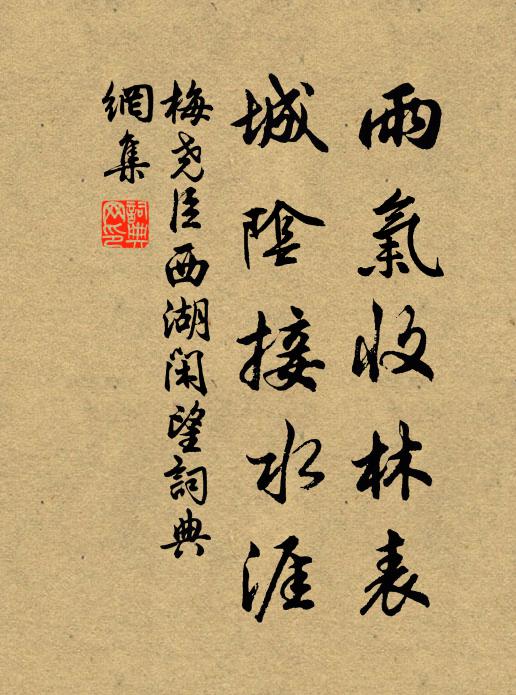 雨氣收林表
城陰接水涯
梅尧臣西湖闲望詞典
網集
詞典
网印